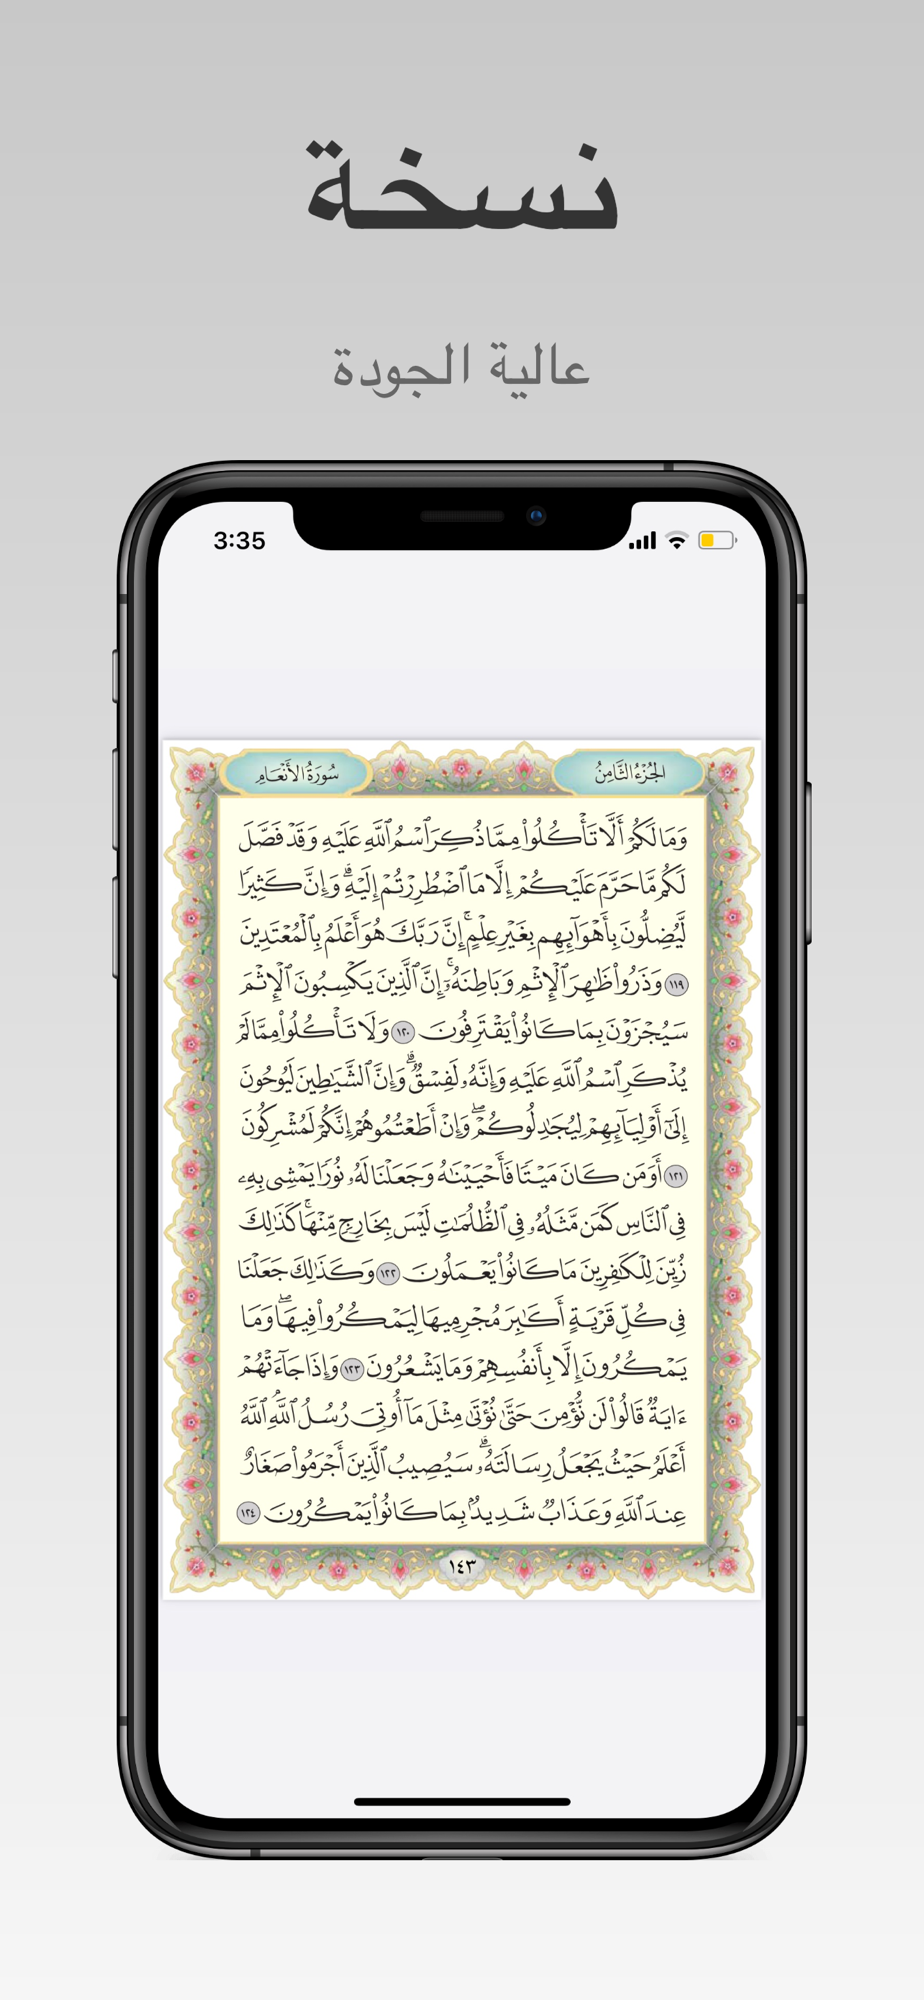 نسخة
عالية الجودة
3:35
الجُزْءُ الثَّامِنُ
سُورَةُ الأَنْعَامِ
وَمَا لَكُمْ أَلَّا تَأْكُلُوا۟ مِمَّا ذُكِرَ ٱسْمُ ٱللَّهِ عَلَيْهِ وَقَدْ فَصَّلَ
لَكُم مَّا حَرَّمَ عَلَيْكُمْ إِلَّا مَا ٱضْطُرِرْتُمْ إِلَيْهِ ۗ وَإِنَّ كَثِيرًا
لَّيُضِلُّونَ بِأَهْوَآئِهِم بِغَيْرِ عِلْمٍ ۗ إِنَّ رَبَّكَ هُوَ أَعْلَمُ بِٱلْمُعْتَدِينَ
١١٩ وَذَرُوا۟ ظَـٰهِرَ ٱلْإِثْمِ وَبَاطِنَهُۥٓ ۚ إِنَّ ٱلَّذِينَ يَكْسِبُونَ ٱلْإِثْمَ
سَيُجْزَوْنَ بِمَا كَانُوا۟ يَقْتَرِفُونَ ١٢٠ وَلَا تَأْكُلُوا۟ مِمَّا لَمْ
يُذْكَرِ ٱسْمُ ٱللَّهِ عَلَيْهِ وَإِنَّهُۥ لَفِسْقٌ ۗ وَإِنَّ ٱلشَّيَـٰطِينَ لَيُوحُونَ
إِلَىٰٓ أَوْلِيَآئِهِمْ لِيُجَـٰدِلُوكُمْ ۖ وَإِنْ أَطَعْتُمُوهُمْ إِنَّكُمْ لَمُشْرِكُونَ
١٢١ أَوَمَن كَانَ مَيْتًا فَأَحْيَيْنَـٰهُ وَجَعَلْنَا لَهُۥ نُورًا يَمْشِى بِهِۦ
فِى ٱلنَّاسِ كَمَن مَّثَلُهُۥ فِى ٱلظُّلُمَـٰتِ لَيْسَ بِخَارِجٍ مِّنْهَا ۚ كَذَٰلِكَ
زُيِّنَ لِلْكَـٰفِرِينَ مَا كَانُوا۟ يَعْمَلُونَ ١٢٢ وَكَذَٰلِكَ جَعَلْنَا
فِى كُلِّ قَرْيَةٍ أَكَـٰبِرَ مُجْرِمِيهَا لِيَمْكُرُوا۟ فِيهَا ۖ وَمَا
يَمْكُرُونَ إِلَّا بِأَنفُسِهِمْ وَمَا يَشْعُرُونَ ١٢٣ وَإِذَا جَآءَتْهُمْ
ءَايَةٌ قَالُوا۟ لَن نُّؤْمِنَ حَتَّىٰ نُؤْتَىٰ مِثْلَ مَآ أُوتِىَ رُسُلُ ٱللَّهِ ۘ ٱللَّهُ
أَعْلَمُ حَيْثُ يَجْعَلُ رِسَالَتَهُۥ ۗ سَيُصِيبُ ٱلَّذِينَ أَجْرَمُوا۟ صَغَارٌ
عِندَ ٱللَّهِ وَعَذَابٌ شَدِيدٌۢ بِمَا كَانُوا۟ يَمْكُرُونَ ١٢٤
١٤٣